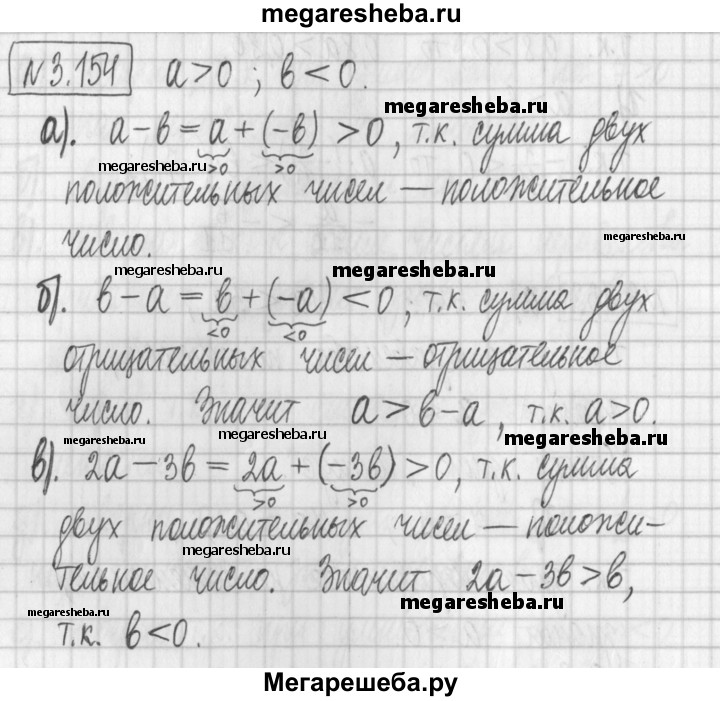 megaresheba.ru
№3.154 a>0 ; в<0.
а). a-в = a + (-в) >0, т.к. сумма двух
megaresheba.ru
megaresheba.ru >0 >0
положительных чисел — положительное
число.
megaresheba.ru
megaresheba.ru megaresheba.ru
б). в-a = в + (-a) <0, т.к. сумма двух
<0 <0
отрицательных чисел — отрицательное
число. Значит a>в-a, т.к. a>0.
megaresheba.ru megaresheba.ru megaresheba.ru
в). 2a-3в = 2a + (-3в) >0, т.к. сумма
>0 >0
двух положительных чисел — положи-
megaresheba.ru
тельное число. Значит 2a-3в>в,
megaresheba.ru megaresheba.ru
т.к. в<0.
Мегарешеба.ру